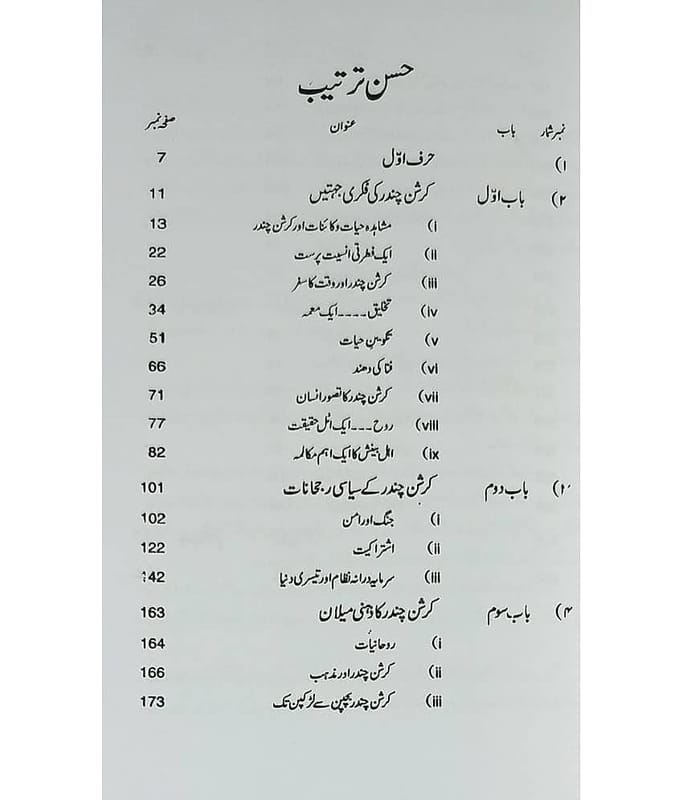 حسن ترتیب
نمبر شمار باب عنوان صفحہ نمبر
۱) حرف اوّل 7
۲) باب اوّل کرشن چندر کی فکری جہتیں 11
i) مشاہدہ حیات و کائنات اور کرشن چندر 13
ii) ایک فطرتی انسیت پرست 22
iii) کرشن چندر اور وقت کا سفر 26
iv) تخلیق ۔۔۔۔ ایک معمہ 34
v) تکوینِ حیات 51
vi) فنا کی دھند 66
vii) کرشن چندر کا تصور انسان 71
viii) روح ۔۔۔ ایک اٹل حقیقت 77
ix) اہل بینش کا ایک اہم مکالمہ 82
۳) باب دوم کرشن چندر کے سیاسی رجحانات 101
i) جنگ اور امن 102
ii) اشتراکیت 122
iii) سرمایہ دارانہ نظام اور تیسری دنیا 142
۴) باب سوم کرشن چندر کا ذہنی میلان 163
i) روحانیات 164
ii) کرشن چندر اور مذہب 166
iii) کرشن چندر بچپن سے لڑکپن تک 173